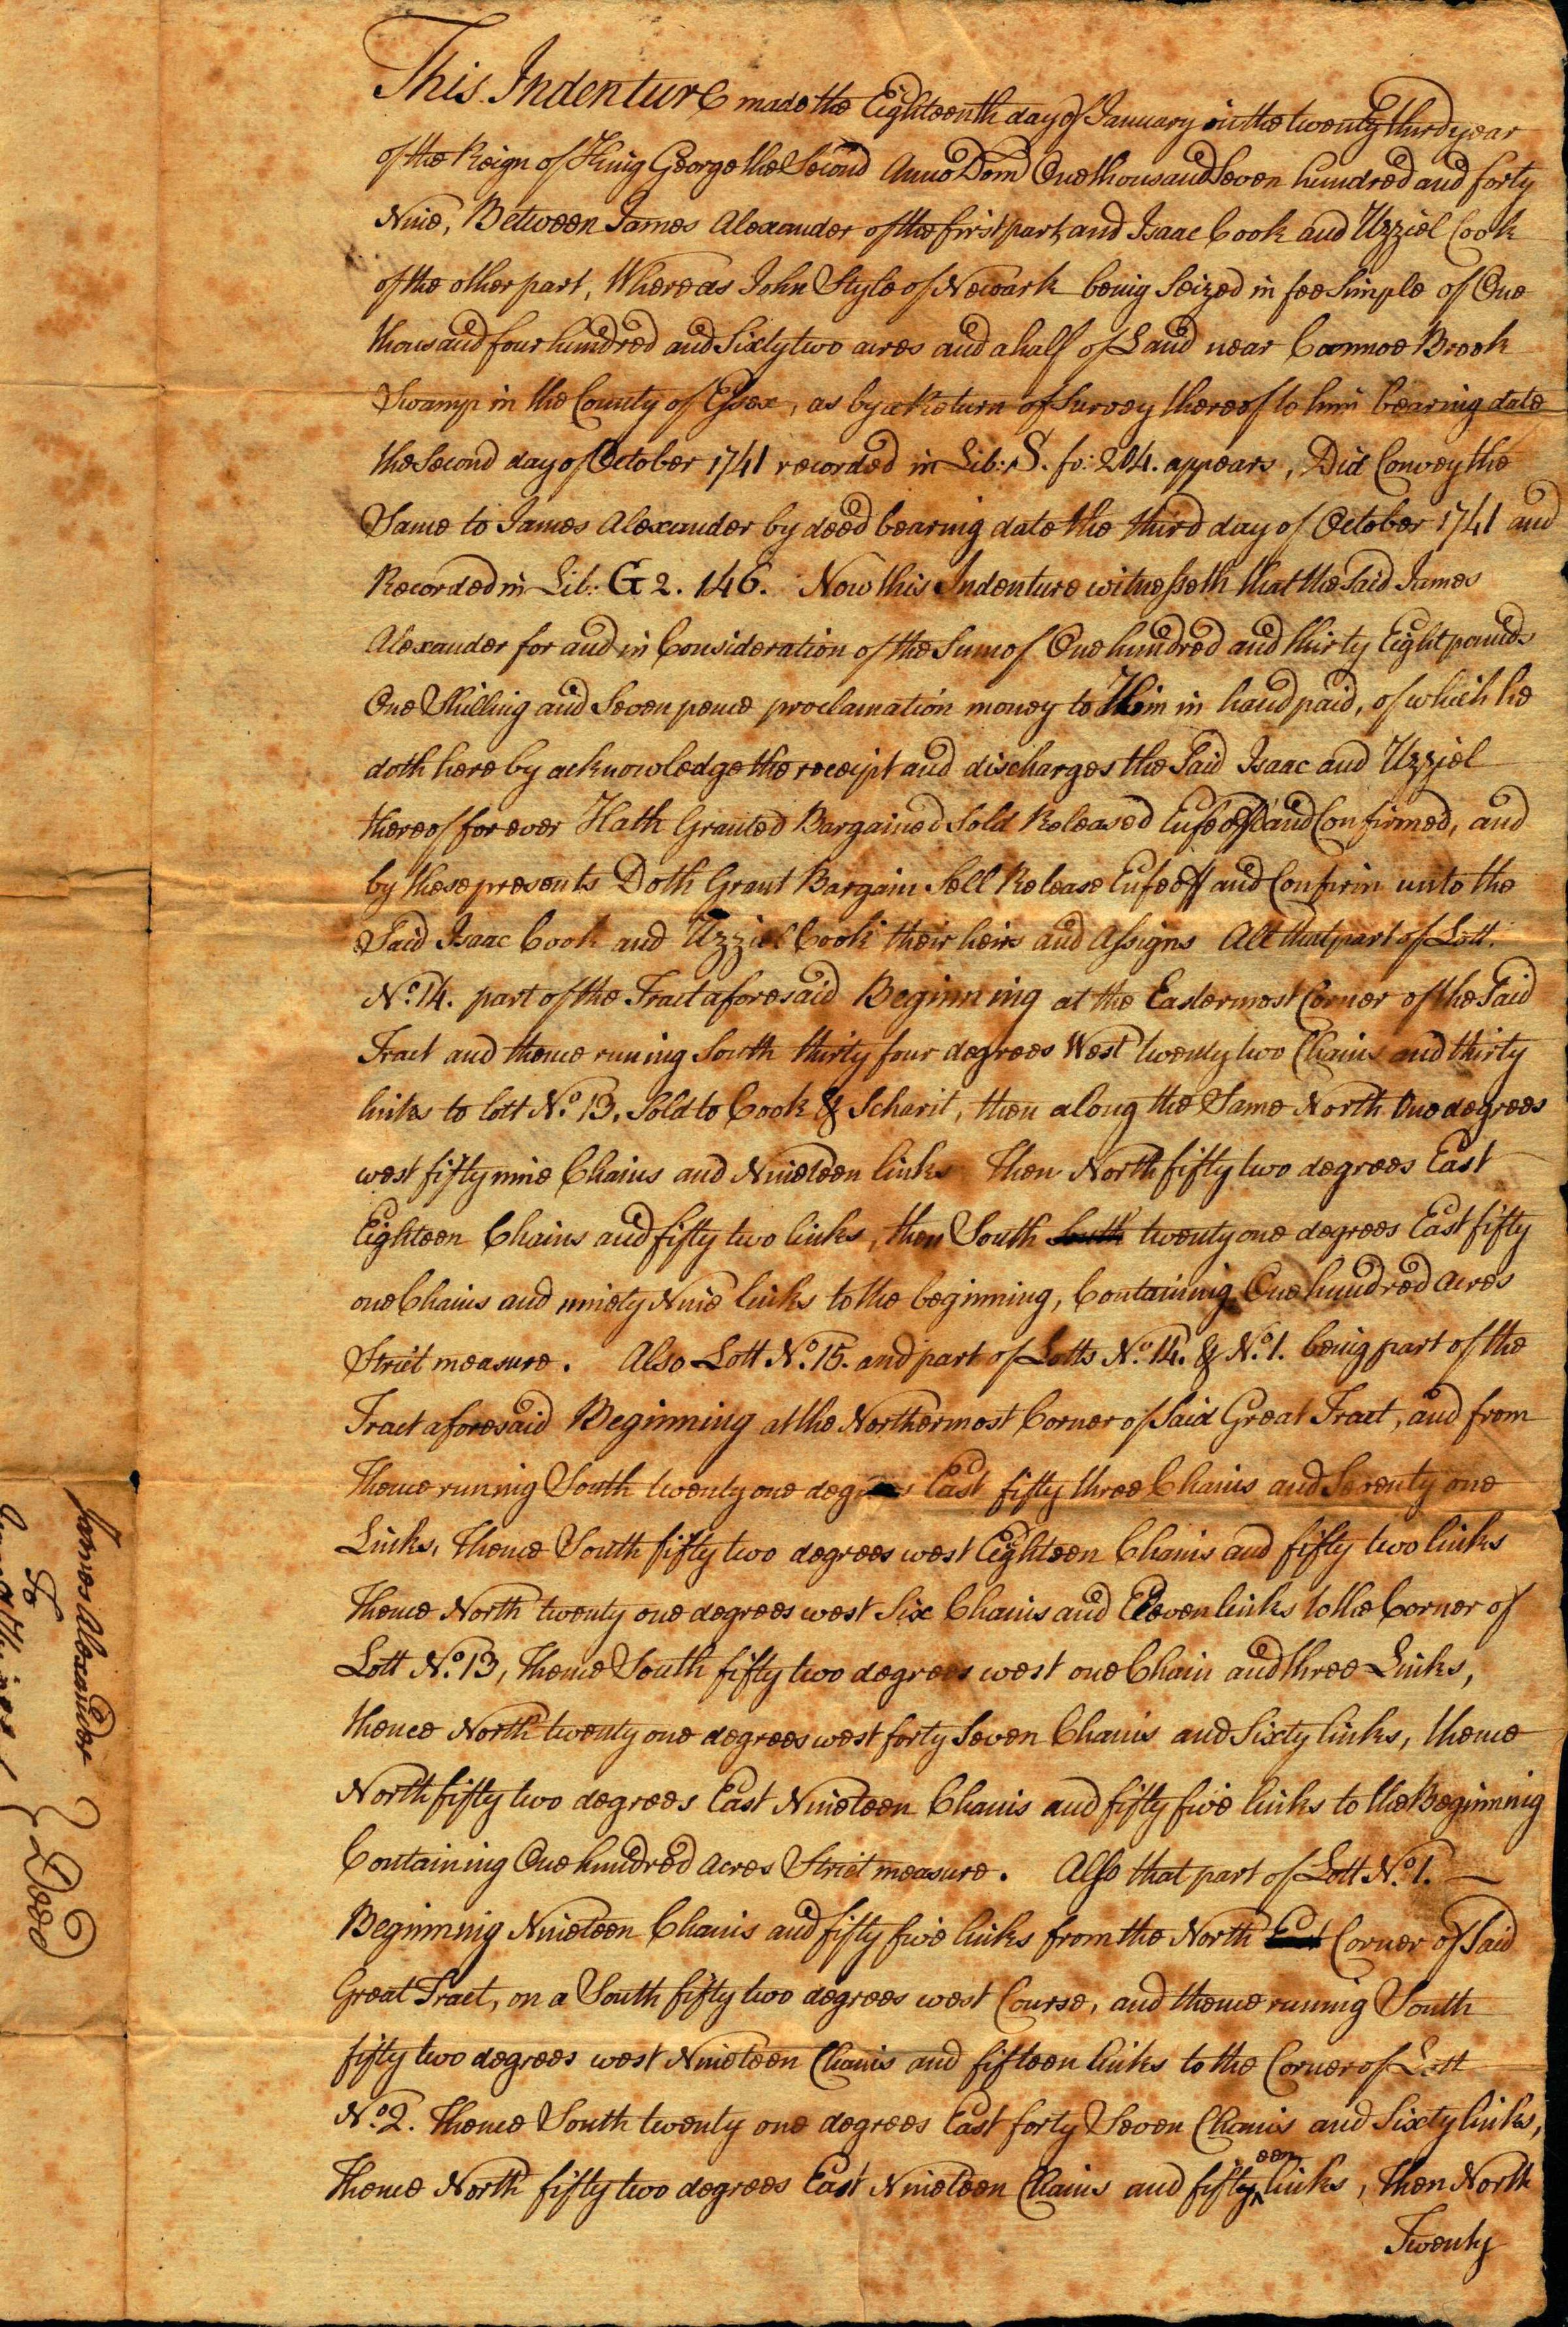 This Indenture made the Eighteenth day of January in the twenty third year
of the Reign of King George the Second Anno Dom One thousand Seven hundred and forty
Nine, Between James Alexander of the first part, and Isaac Cook and Uzziel Cook
of the other part, Whereas John Style of Newark being Seized in fee Simple of One
thousand four hundred and Sixty two acres and a half of Land near Cannoe Brook
Swamp in the County of Essex, as by a Return of Survey thereof to him bearing date
the Second day of October 1741 recorded in Lib: S. fo: 204. appears, Did Convey the
Same to James Alexander by deed bearing date the third day of October 1741 and
Recorded in Lib: G 2. 146. Now this Indenture witnesseth that the Said James
Alexander for and in Consideration of the Sum of One hundred and thirty Eight pounds
One Shilling and Seven pence proclamation money to Him in hand paid, of which he
doth here by acknowledge the receipt and discharges the Said Isaac and Uzziel
thereof for ever Hath Granted Bargained Sold Released Enfeoff'd and Confirmed, and
by these presents Doth Grant Bargain Sell Release Enfeoff and Confirm unto the
Said Isaac Cook and Uzziel Cook their heirs and Assigns All that part of Lott.
No. 14. part of the Tract aforesaid Beginning at the Eastermost Corner of the Said
Tract and thence runing South thirty four degrees West twenty two Chains and thirty
links to lott No. 13. Sold to Cook & Scharit, then along the Same North One degrees
west fifty nine Chains and Nineteen links Then North fifty two degrees East
Eighteen Chains and fifty two links, then South South twenty one degrees East fifty
one Chains and ninety Nine links to the beginning, Containing One hundred Acres
Strict measure. Also Lott No. 15. and part of Lotts No. 14. & No. 1. being part of the
Tract aforesaid Beginning at the Northermost Corner of Said Great Tract, and from
Thence running South twenty one degrees East fifty three Chains and Seventy one
Links, Thence South fifty two degrees west Eighteen Chains and fifty two links
Thence North twenty one degrees west Six Chains and Eleven links to the Corner of
Lott No. 13, Thence South fifty two degrees west one Chain and three Links,
thence North twenty one degrees west forty Seven Chains and Sixty links, thence
North fifty two degrees East Nineteen Chains and fifty five links to the Beginning
Containing One hundred Acres Strict measure. Also that part of Lott No. 1.
Beginning Nineteen Chains and fifty five links from the North East Corner of Said
Great Tract, on a South fifty two degrees west Course, and thence runing South
fifty two degrees west Nineteen Chains and fifteen links to the Corner of Lott
No. 2. Thence South twenty one degrees East forty Seven Chains and Sixty links,
een
Thence North fifty two degrees East Nineteen Chains and fifty links, then North
Twenty
James Alexander
To
Deed